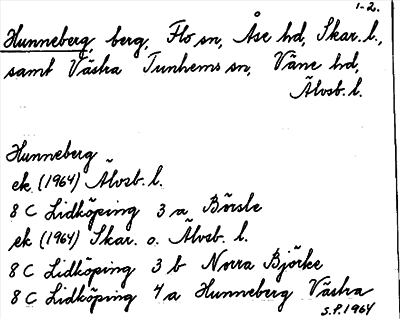 1-2.
Hunneberg, berg, Flo sn, Åse hd, Skar. l.,
samt Västra Tunhems sn, Väne hd,
Älvsb. l.
Hunneberg
ek (1964) Älvsb. l.
8 C Lidköping 3 a Börsle
ek (1964) Skar. o. Älvsb. l.
8 C Lidköping 3 b Norra Björke
8 C Lidköping 4 a Hunneberg Västra
S.P. 1964